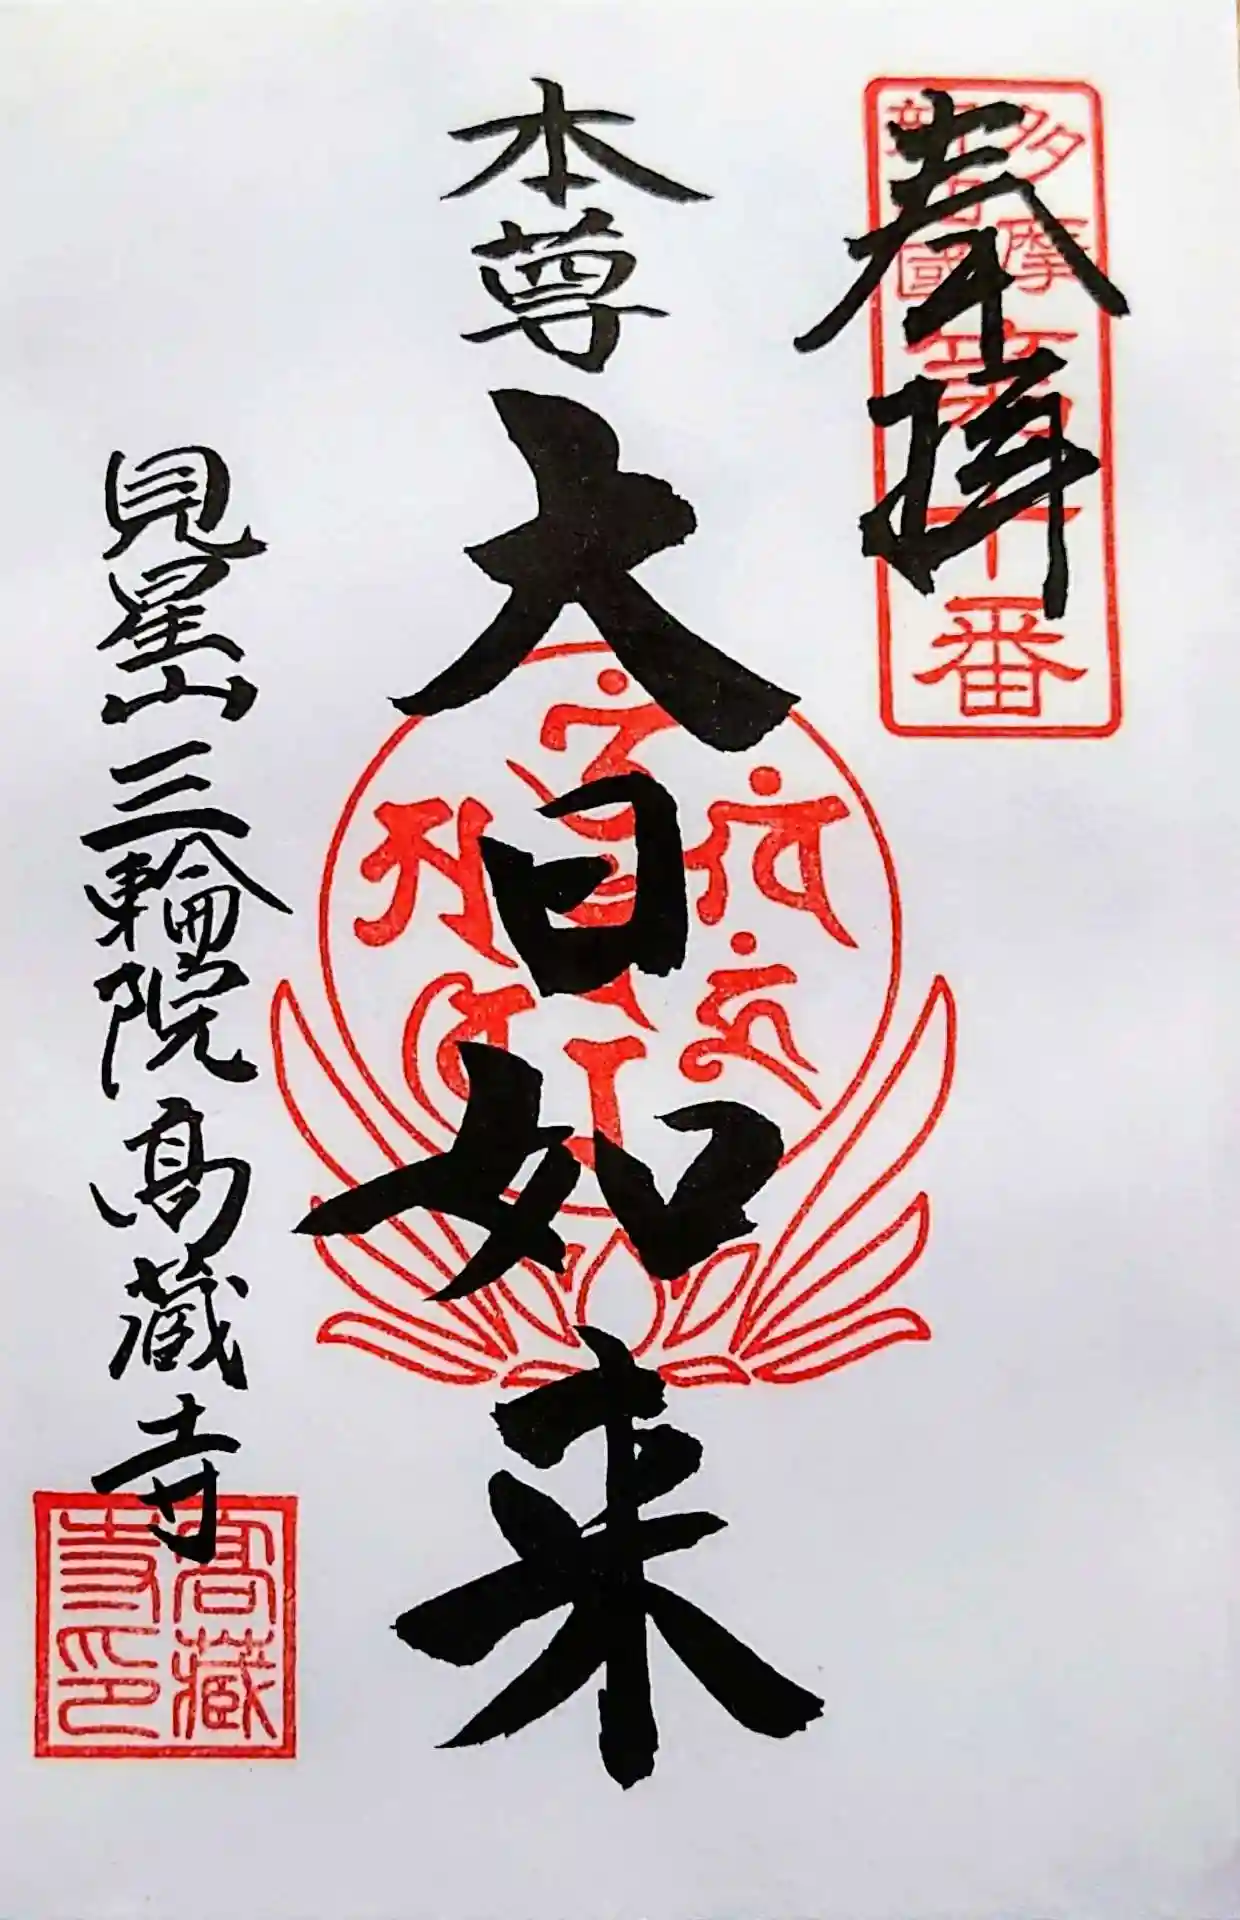 奉拝
多摩
新四國
第 十番
本尊
大日如来
見星山三輪院高蔵寺
高蔵
寺印